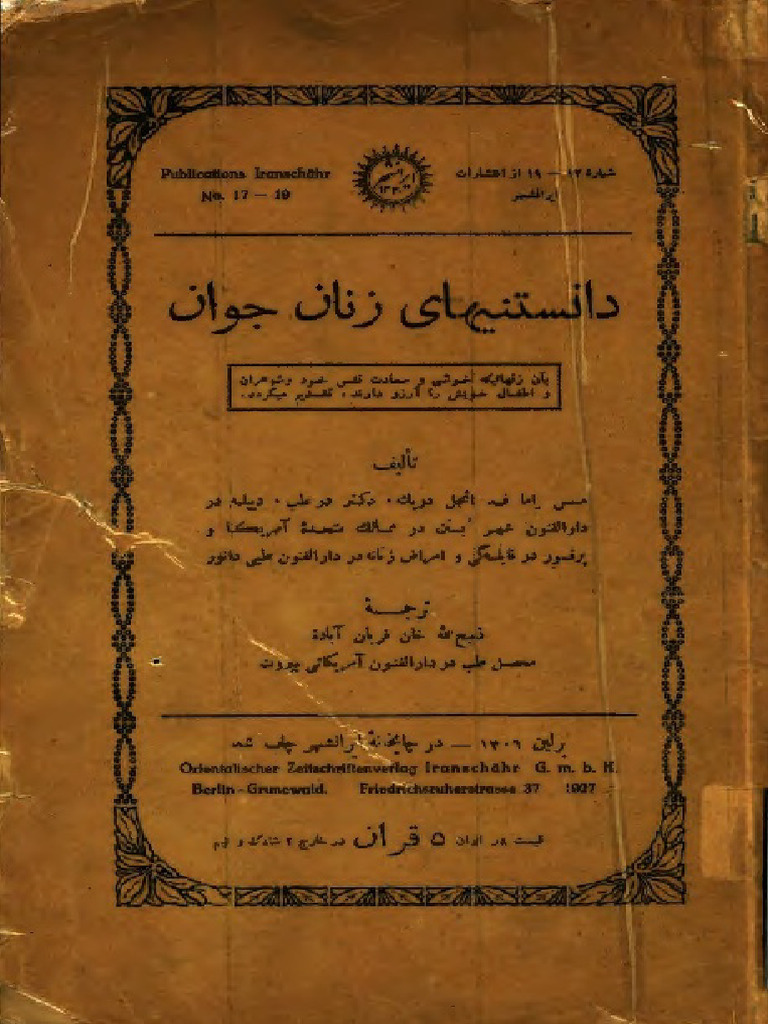 Publications Iranschähr
No. 17 — 19
شماره ۱۷ — ۱۹ از انتشارات
ایرانشهر
دانستنیهای زنان جوان
بآن زنهائیکه خوشی و سعادت نفس خود و شوهران
و اطفال خویش را آرزو دارند، تقدیم میگردد.
تألیف
مسس اما فـ انجل دریك، دکتر در طب، دیپلمه در
دارالفنون شهر بستن در ممالك متحدهٔ آمریکا و
پرفسور در قابله‌گی و امراض زنانه در دارالفنون طبی دانور
ترجمهٔ
ذبیح الله خان قربان آبادهٔ
محصل طب در دارالفنون آمریکائی بیروت
برلین ۱۳۰۶ — در چاپخانهٔ ایرانشهر چاپ شد
Orientalischer Zeitschriftenverlag Iranschähr G. m. b. H.
Berlin-Grunewald. Friedrichsruherstrasse 37 1927
قیمت در ایران ۵ قران در خارج ۲ شلنگ و نیم